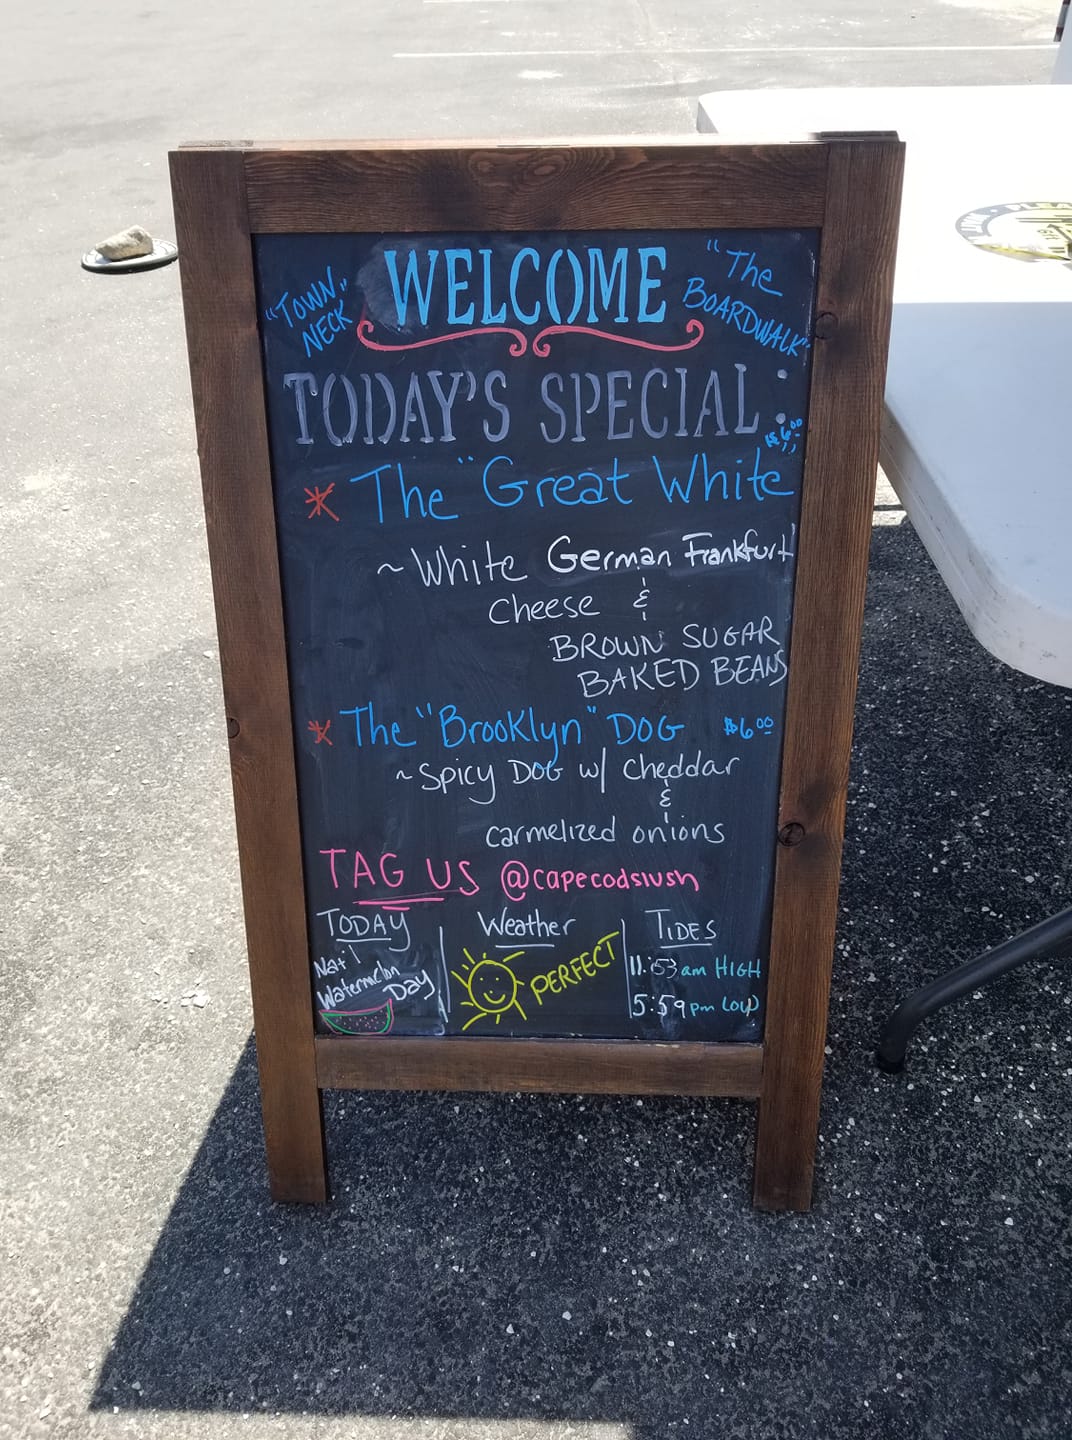 "TOWN NECK"
WELCOME
"The BOARDWALK"
TODAY'S SPECIAL:
* The "Great White" $6.00
~ White German Frankfurt
Cheese &
BROWN SUGAR
BAKED BEANS
* The "Brooklyn" DOG $6.00
~ Spicy DOG w/ Cheddar
&
carmelized onions
TAG US @capecodslush
TODAY
Nat'l
Watermelon
Day
Weather
PERFECT
TIDES
11:53 am HIGH
5:59 pm LOW